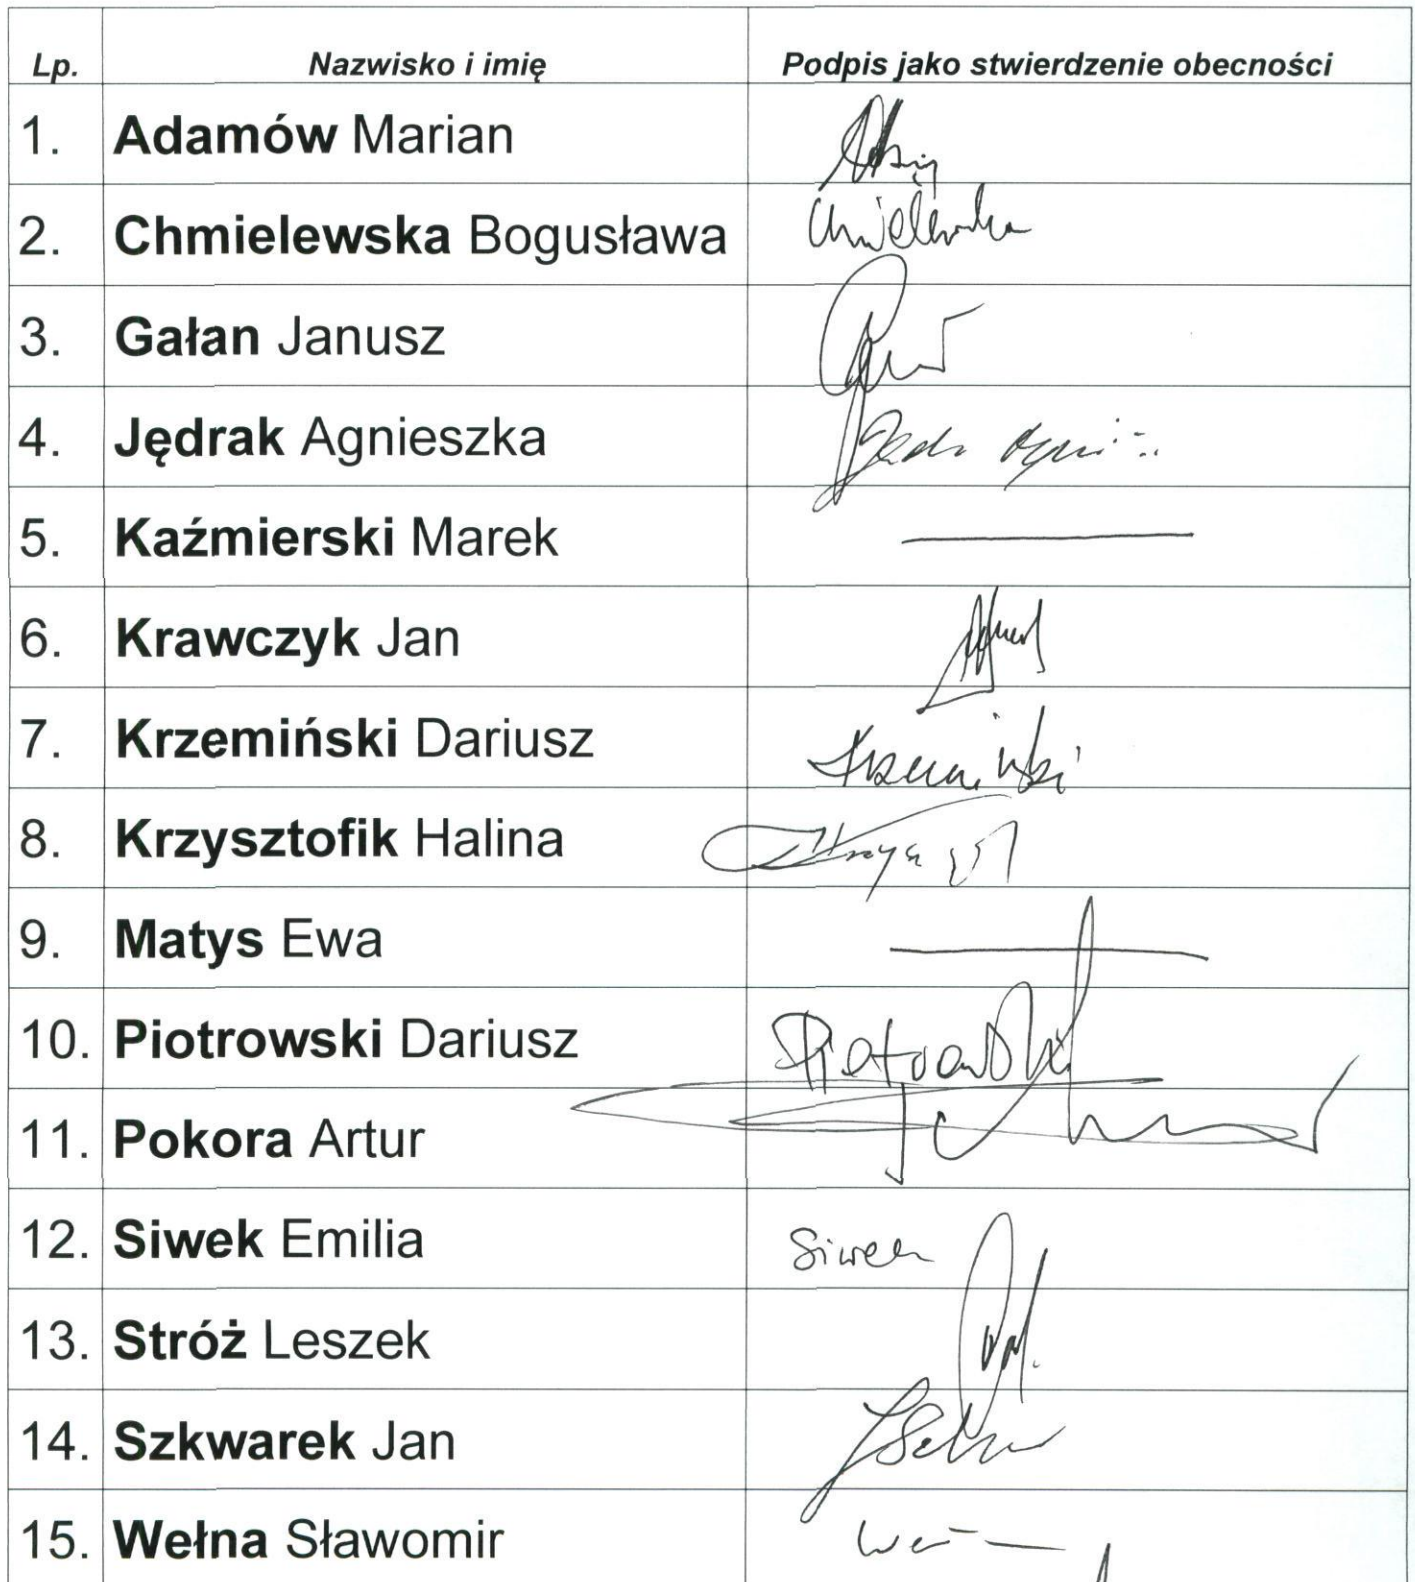 Lp. Nazwisko i imię Podpis jako stwierdzenie obecności
1. Adamów Marian
2. Chmielewska Bogusława Chmielewska
3. Gałan Janusz
4. Jędrak Agnieszka
5. Kaźmierski Marek
6. Krawczyk Jan
7. Krzemiński Dariusz Krzemiński
8. Krzysztofik Halina
9. Matys Ewa
10. Piotrowski Dariusz Piotrowski
11. Pokora Artur
12. Siwek Emilia Siwek
13. Stróż Leszek
14. Szkwarek Jan
15. Wełna Sławomir